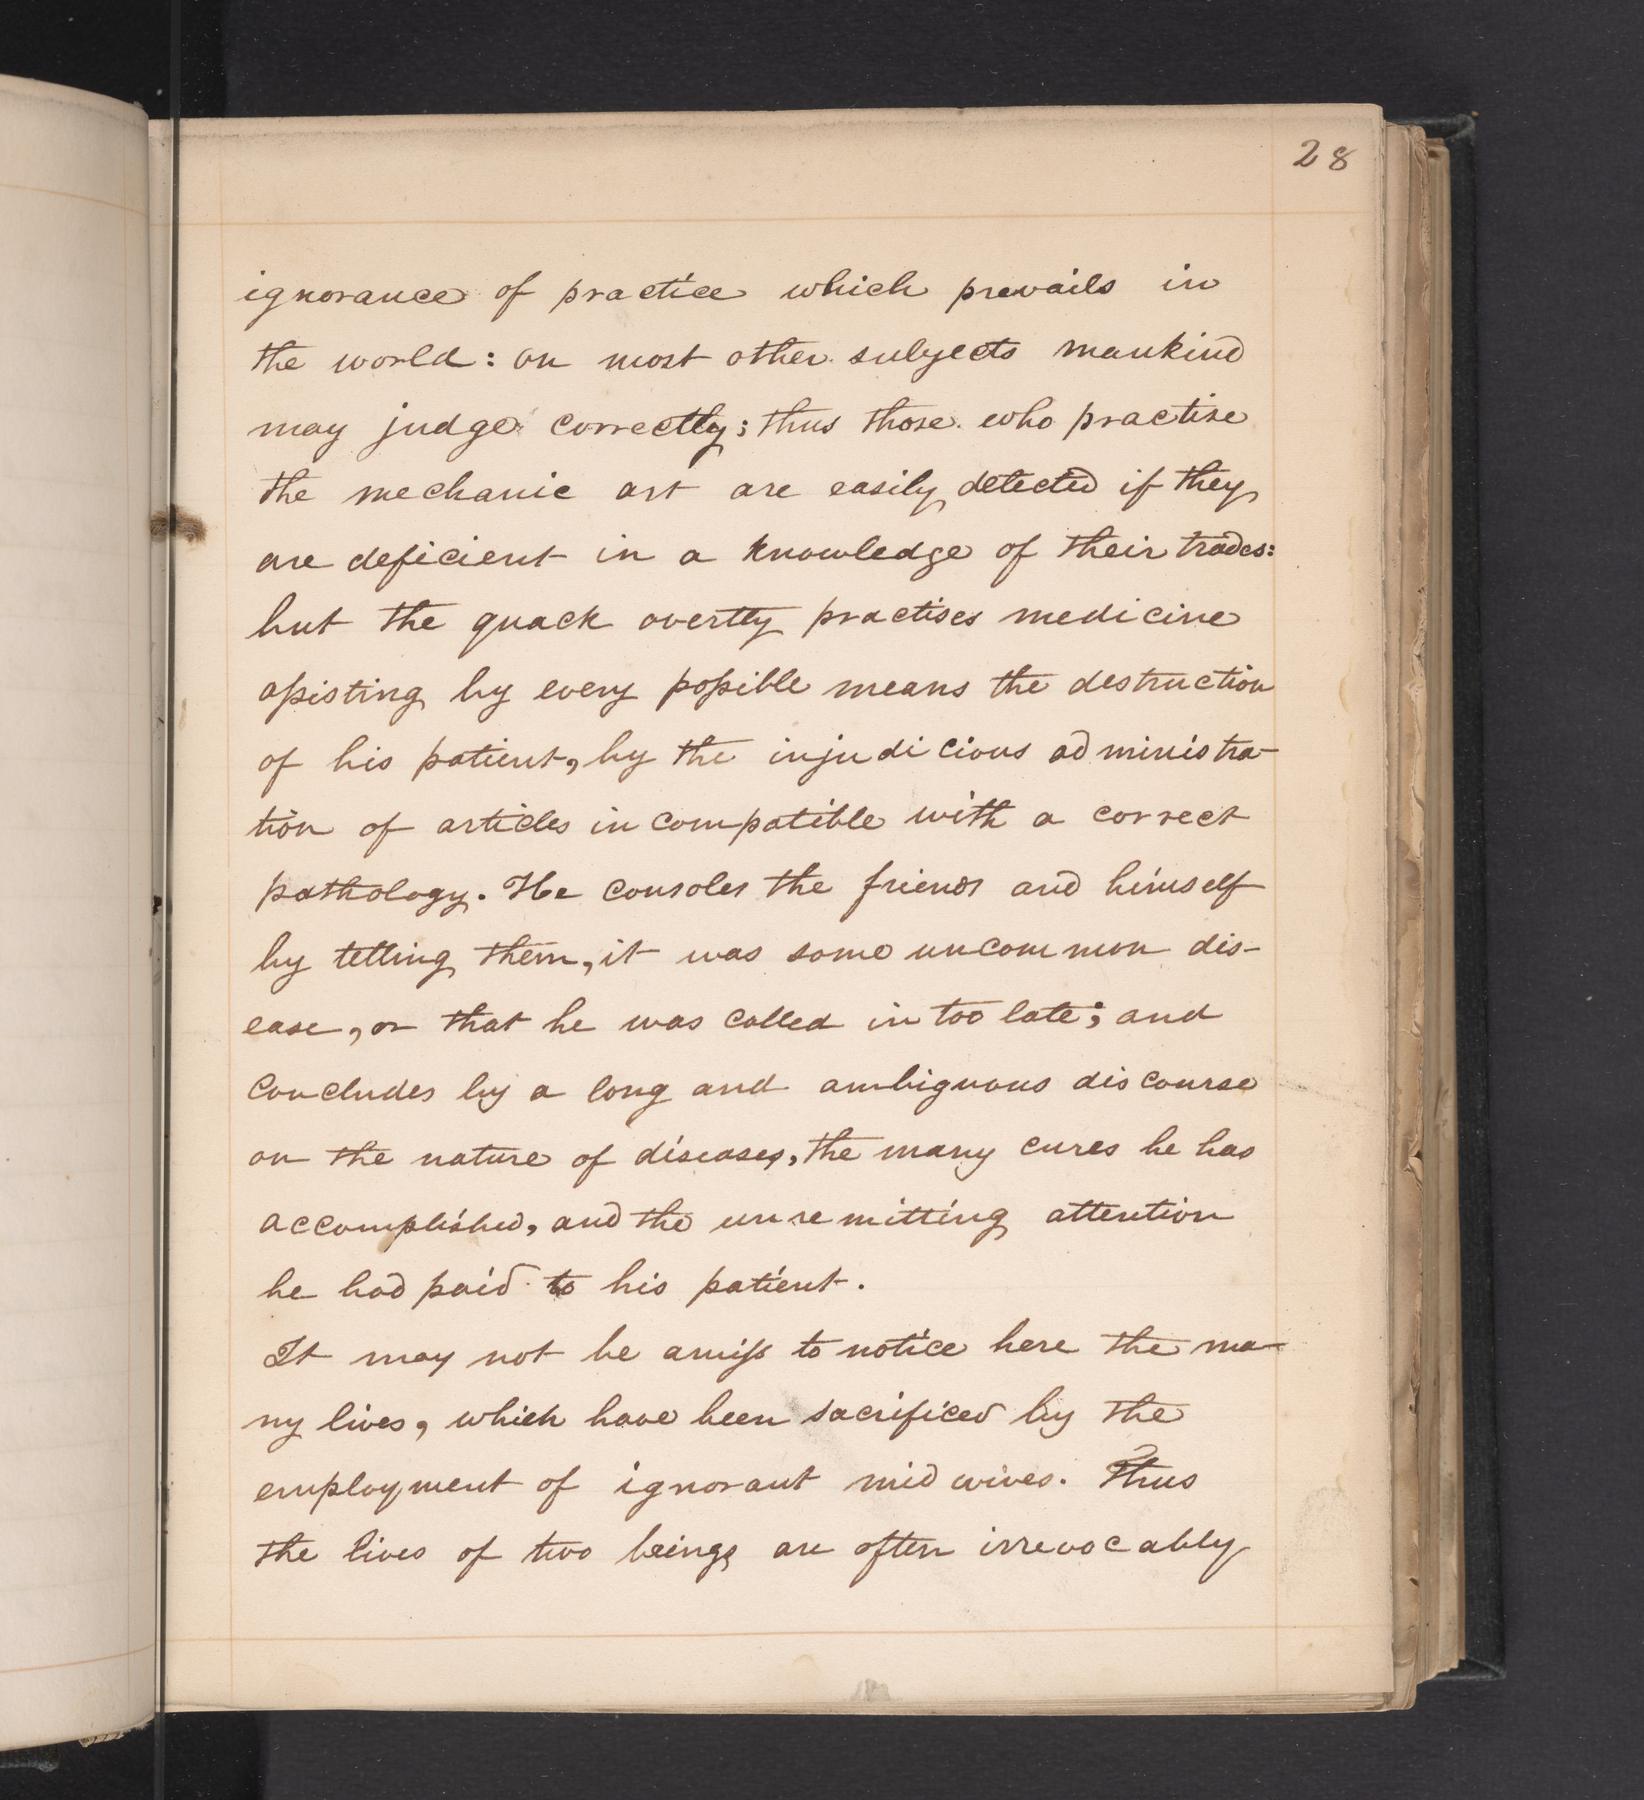 28
ignorance of practice which prevails in
the world: on most other subjects mankind
may judge correctly; thus those who practise
the mechanic art are easily detected if they
are deficient in a knowledge of their trades:
but the quack overtly practises medicine
assisting by every possible means the destruction
of his patient, by the injudicious administra-
tion of articles incompatible with a correct
pathology. He consoles the friends and himself
by telling them, it was some uncommon dis-
ease, or that he was called in too late; and
concludes by a long and ambiguous discourse
on the nature of diseases, the many cures he has
accomplished, and the unremitting attention
he had paid to his patient.
It may not be amiss to notice here the ma-
ny lives, which have been sacrificed by the
employment of ignorant midwives. Thus
the lives of two beings are often irrevocably